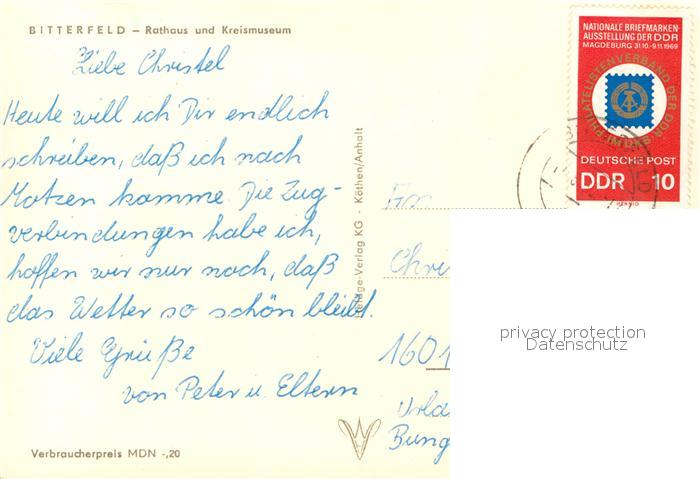 BITTERFELD – Rathaus und Kreismuseum
Liebe Christel
Heute will ich Dir endlich
schreiben, daß ich nach
Motzen komme. Die Zug-
verbindungen habe ich,
hoffen wir nur noch, daß
das Wetter so schön bleibt.
Viele Grüße
von Peter u. Eltern
Verbraucherpreis MDN -,20
Verlag KG · Köthen/Anhalt
NATIONALE BRIEFMARKEN-
AUSSTELLUNG DER DDR
MAGDEBURG 31.10.-9.11.1969
PHILATELISTENVERBAND DER DDR IM DKB
DEUTSCHE POST
DDR 10
An
Chris
1601
Urla
Bung
privacy protection
Datenschutz